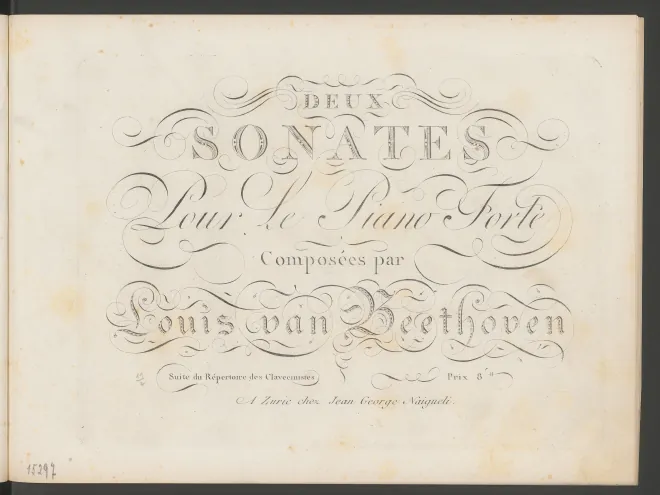 DEUX
SONATES
Pour Le Piano Forte
Composées par
Louis van Beethoven
Suite du Répertoire des Clavecinistes
Prix 8
A Zuric chez Jean George Naigueli.
15297